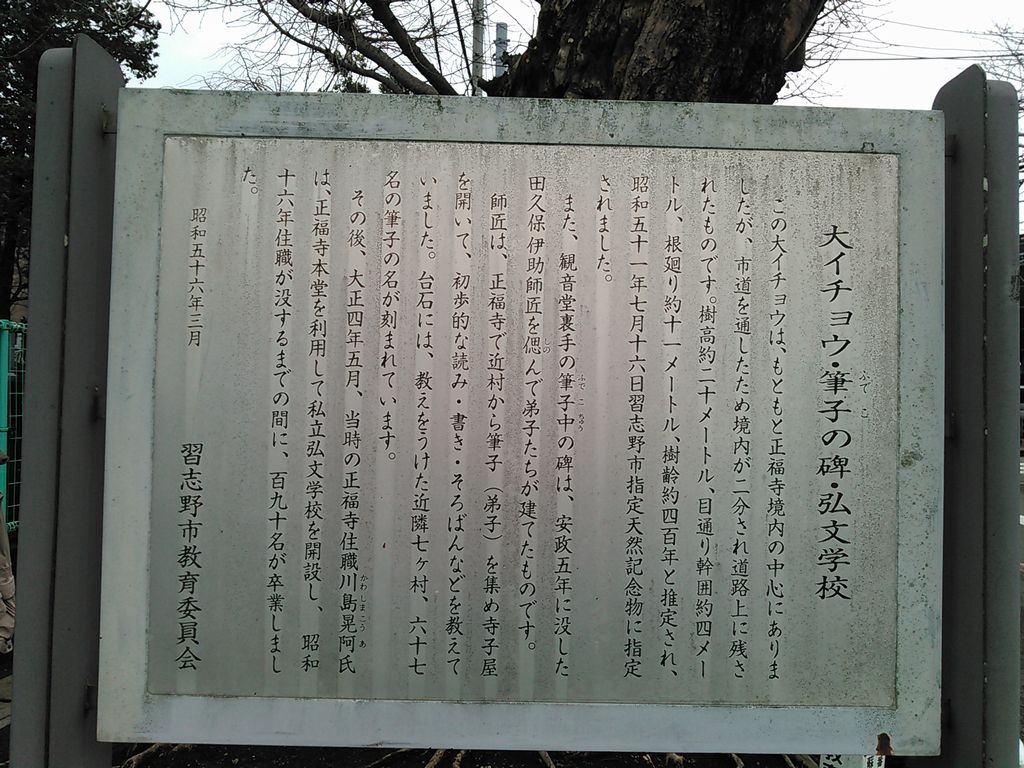 大イチョウ・筆子の碑・弘文学校
ふでこ
この大イチョウは、もともと正福寺境内の中心にありま
したが、市道を通したため境内が二分され道路上に残さ
れたものです。樹高約二十メートル、目通り幹囲約四メー
トル、根廻り約十一メートル、樹齢約四百年と推定され、
昭和五十一年七月十六日習志野市指定天然記念物に指定
されました。
また、観音堂裏手の筆子中の碑は、安政五年に没した
ふでこちゅう
田久保伊助師匠を偲んで弟子たちが建てたものです。
しの
師匠は、正福寺で近村から筆子（弟子）を集め寺子屋
を開いて、初歩的な読み・書き・そろばんなどを教えて
いました。台石には、教えをうけた近隣七ヶ村、六十七
名の筆子の名が刻まれています。
その後、大正四年五月、当時の正福寺住職川島晃阿氏
かわしまこうあ
は、正福寺本堂を利用して私立弘文学校を開設し、昭和
十六年住職が没するまでの間に、百九十名が卒業しまし
た。
昭和五十六年三月
習志野市教育委員会